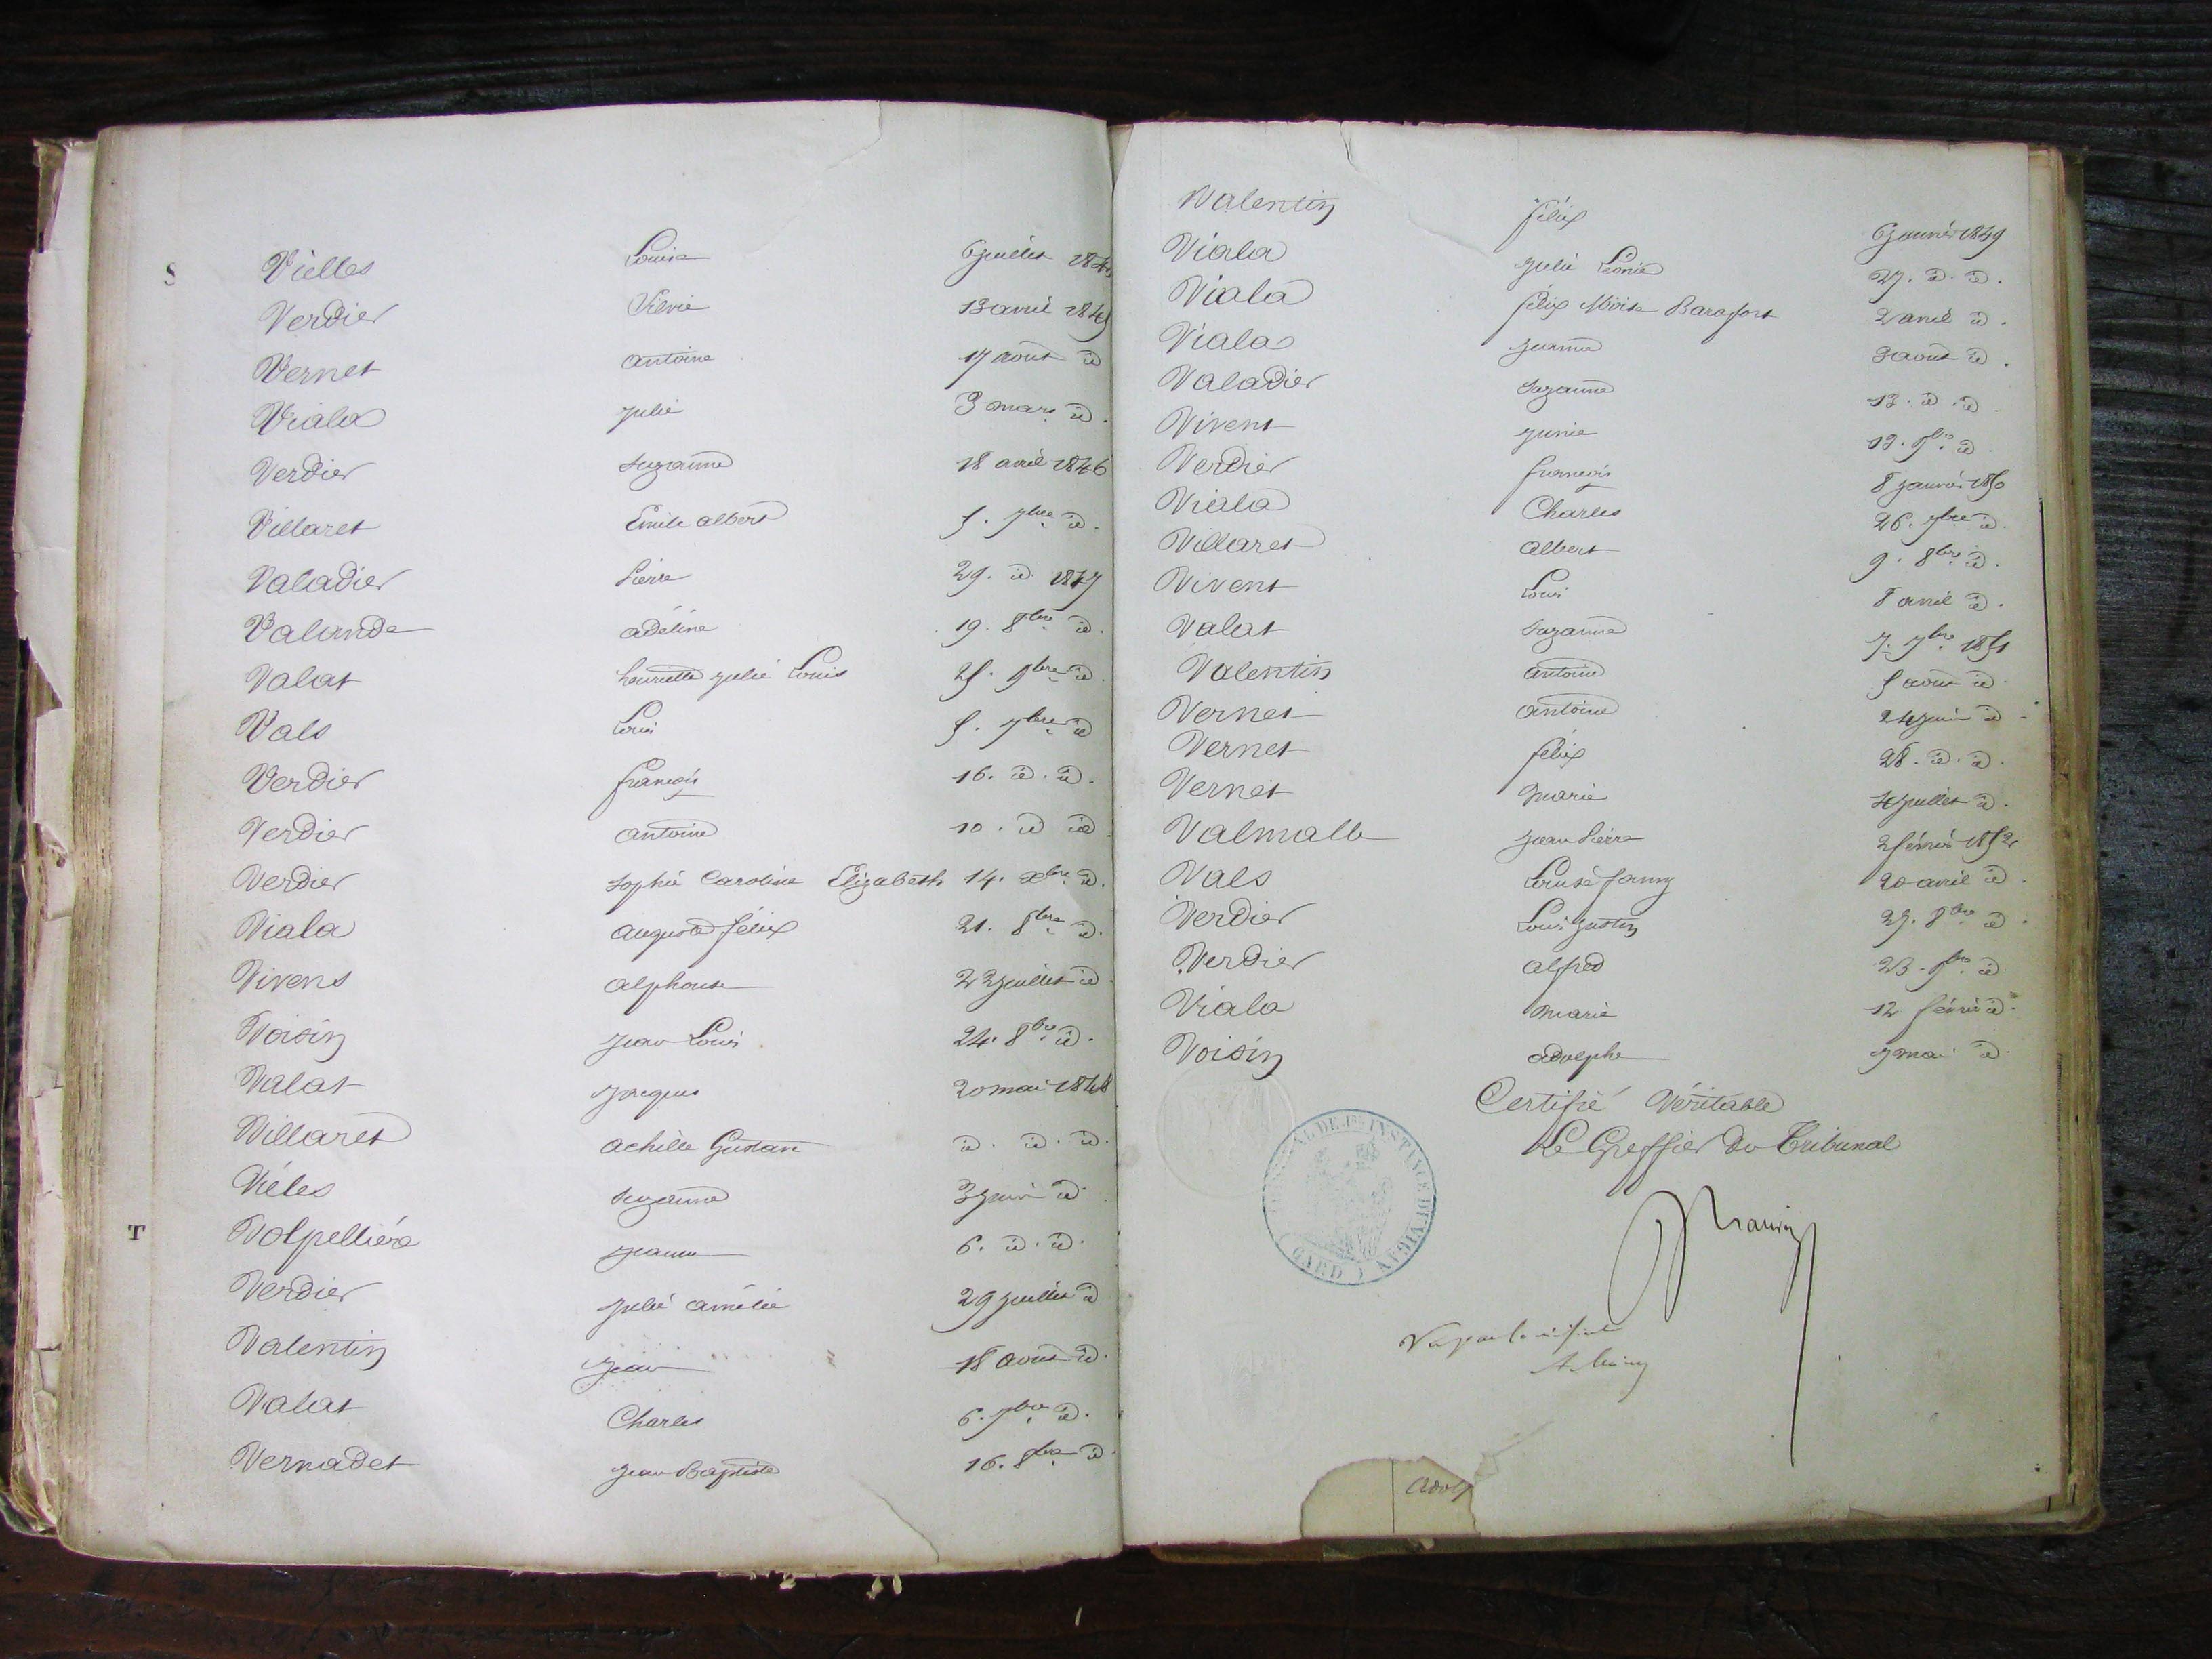 S
Vielles Louise 6 juillet
Verdier Silvie 13 avril 1845
Vernet antoine 17 aout id
Viala julie 3 mars id.
Verdier suzanne 18 avril 1846
Villaret Emile albert 5. 7bre id.
Valadier Pierre 29. id. 1847
Valande adéline 19. 8bre id.
Valat henriette julie Louis 25. 9bre id.
Vals Louis 5. 7bre id
Verdier françois 16. id. id.
Verdier antoine 10. id id
Verdier sophie Caroline Elizabeth 14. Xbre id.
Viala auguste félix 21. 8bre id.
Vivens alphonse 22 juillet id.
Voisin jean Louis 24. 8bre id.
Valat jacques 20 mai 1848
Villaret achille Gustave id. id. id.
Vieles suzanne 3 juin id.
T
Volpellière jeanne 6. id. id.
Verdier julie amélie 29 juillet id
Valentin jean 18 aout id.
Valat Charles 6. 7bre id.
Vernadet jean Baptiste 16. 8bre id.
Valentin félix 6 janvier 1849
Viala julie Léonie 27. id. id.
Viala félix Moïse Barafort 2 avril id.
Viala jeanne 3 aout id.
Valadier suzanne 13. id. id.
Vivent junie 13. 9bre id.
Verdier françois 8 janvier 1850
Viala Charles 26. 7bre id.
Villaret albert 9. 8bre id.
Vivent Louis 8 avril id.
Valat suzanne 7. 7bre 1851
Valentin antoine 5 aout id.
Vernet antoine 24 juin id.
Vernet félix 28. id. id.
Vernet marie 4 juillet id.
Valmalle jean Pierre 2 février 1852
Vals Louise fanny 20 avril id.
Verdier Louis justin 29. 8bre id.
Verdier alfred 23. 9bre id
Viala marie 12 février id.
Voisin adolphe 7 mai id.
Certifié Véritable
Le Greffier du Tribunal
TRIBUNAL DE 1re INSTANCE DU VIGAN
( GARD )
Vu par le
Adolp